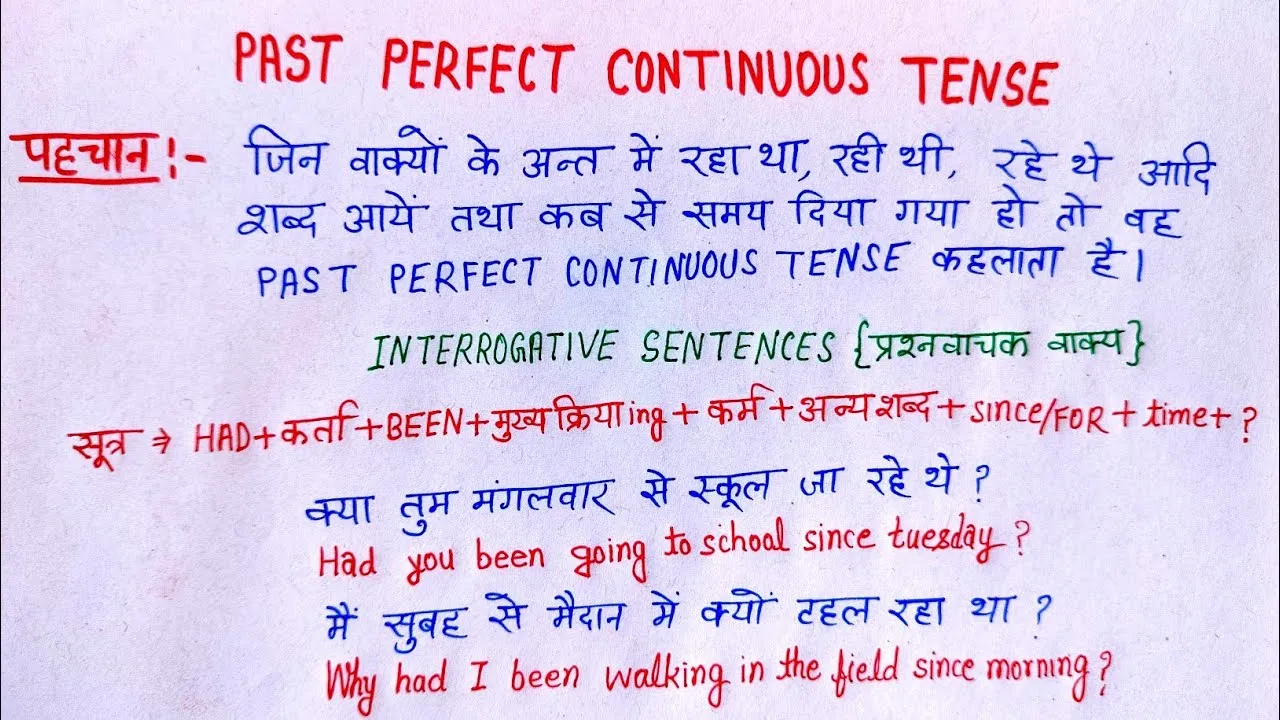 PAST PERFECT CONTINUOUS TENSE
पहचान!:- जिन वाक्यों के अन्त में रहा था, रही थी, रहे थे आदि
शब्द आयें तथा कब से समय दिया गया हो तो वह
PAST PERFECT CONTINUOUS TENSE कहलाता है।
INTERROGATIVE SENTENCES {प्रश्नवाचक वाक्य}
सूत्र ⇒ HAD+कर्ता+BEEN+मुख्य क्रिया ing + कर्म + अन्य शब्द + since/FOR + time + ?
क्या तुम मंगलवार से स्कूल जा रहे थे ?
Had you been going to school since tuesday ?
मैं सुबह से मैदान में क्यों टहल रहा था ?
Why had I been walking in the field since morning ?